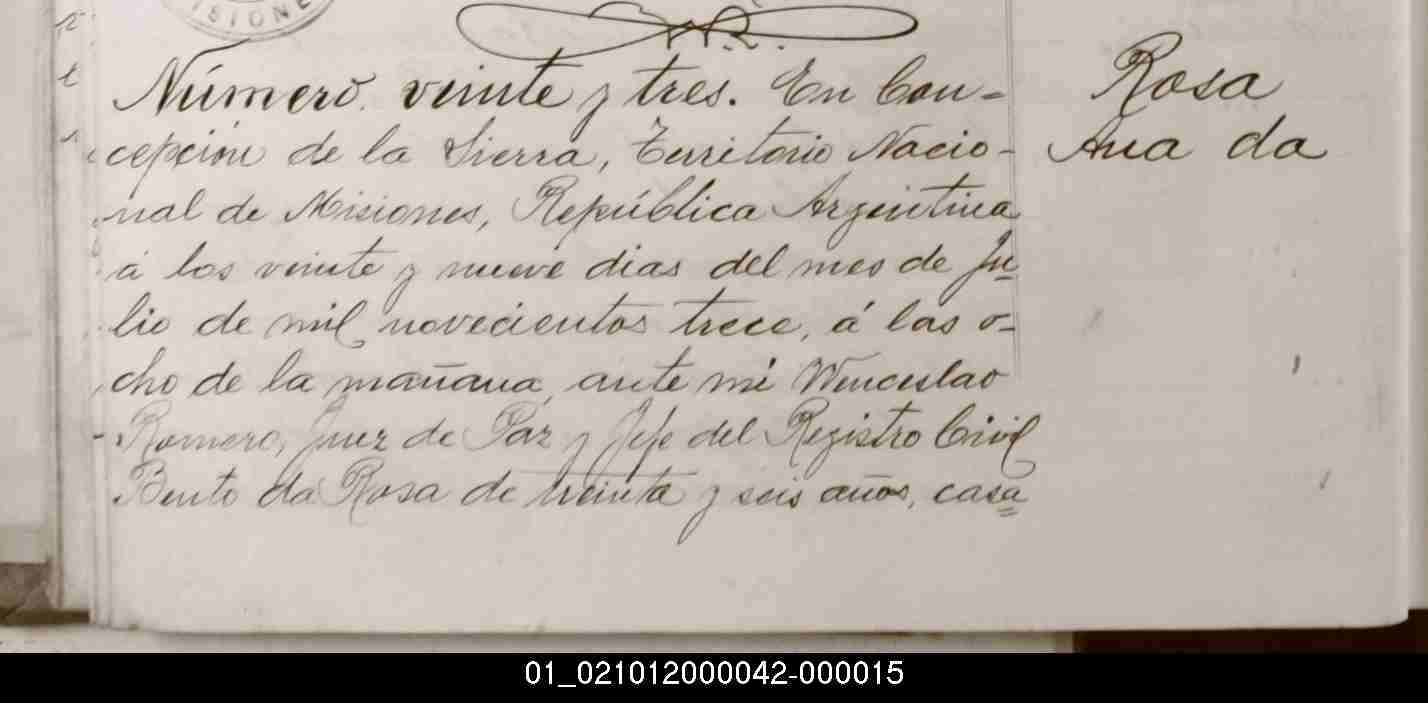 ISIONE
W.R.
Número veinte y tres. En Con-
cepción de la Sierra, Territorio Nacio-
nal de Misiones, República Argentina
á los veinte y nueve dias del mes de Ju
lio de mil novecientos trece, á las o-
cho de la mañana, ante mi Wenceslao
Romero, Juez de Paz y Jefe del Registro Civil
Bento da Rosa de treinta y seis años, casa
Rosa
Ana da
01_021012000042-000015